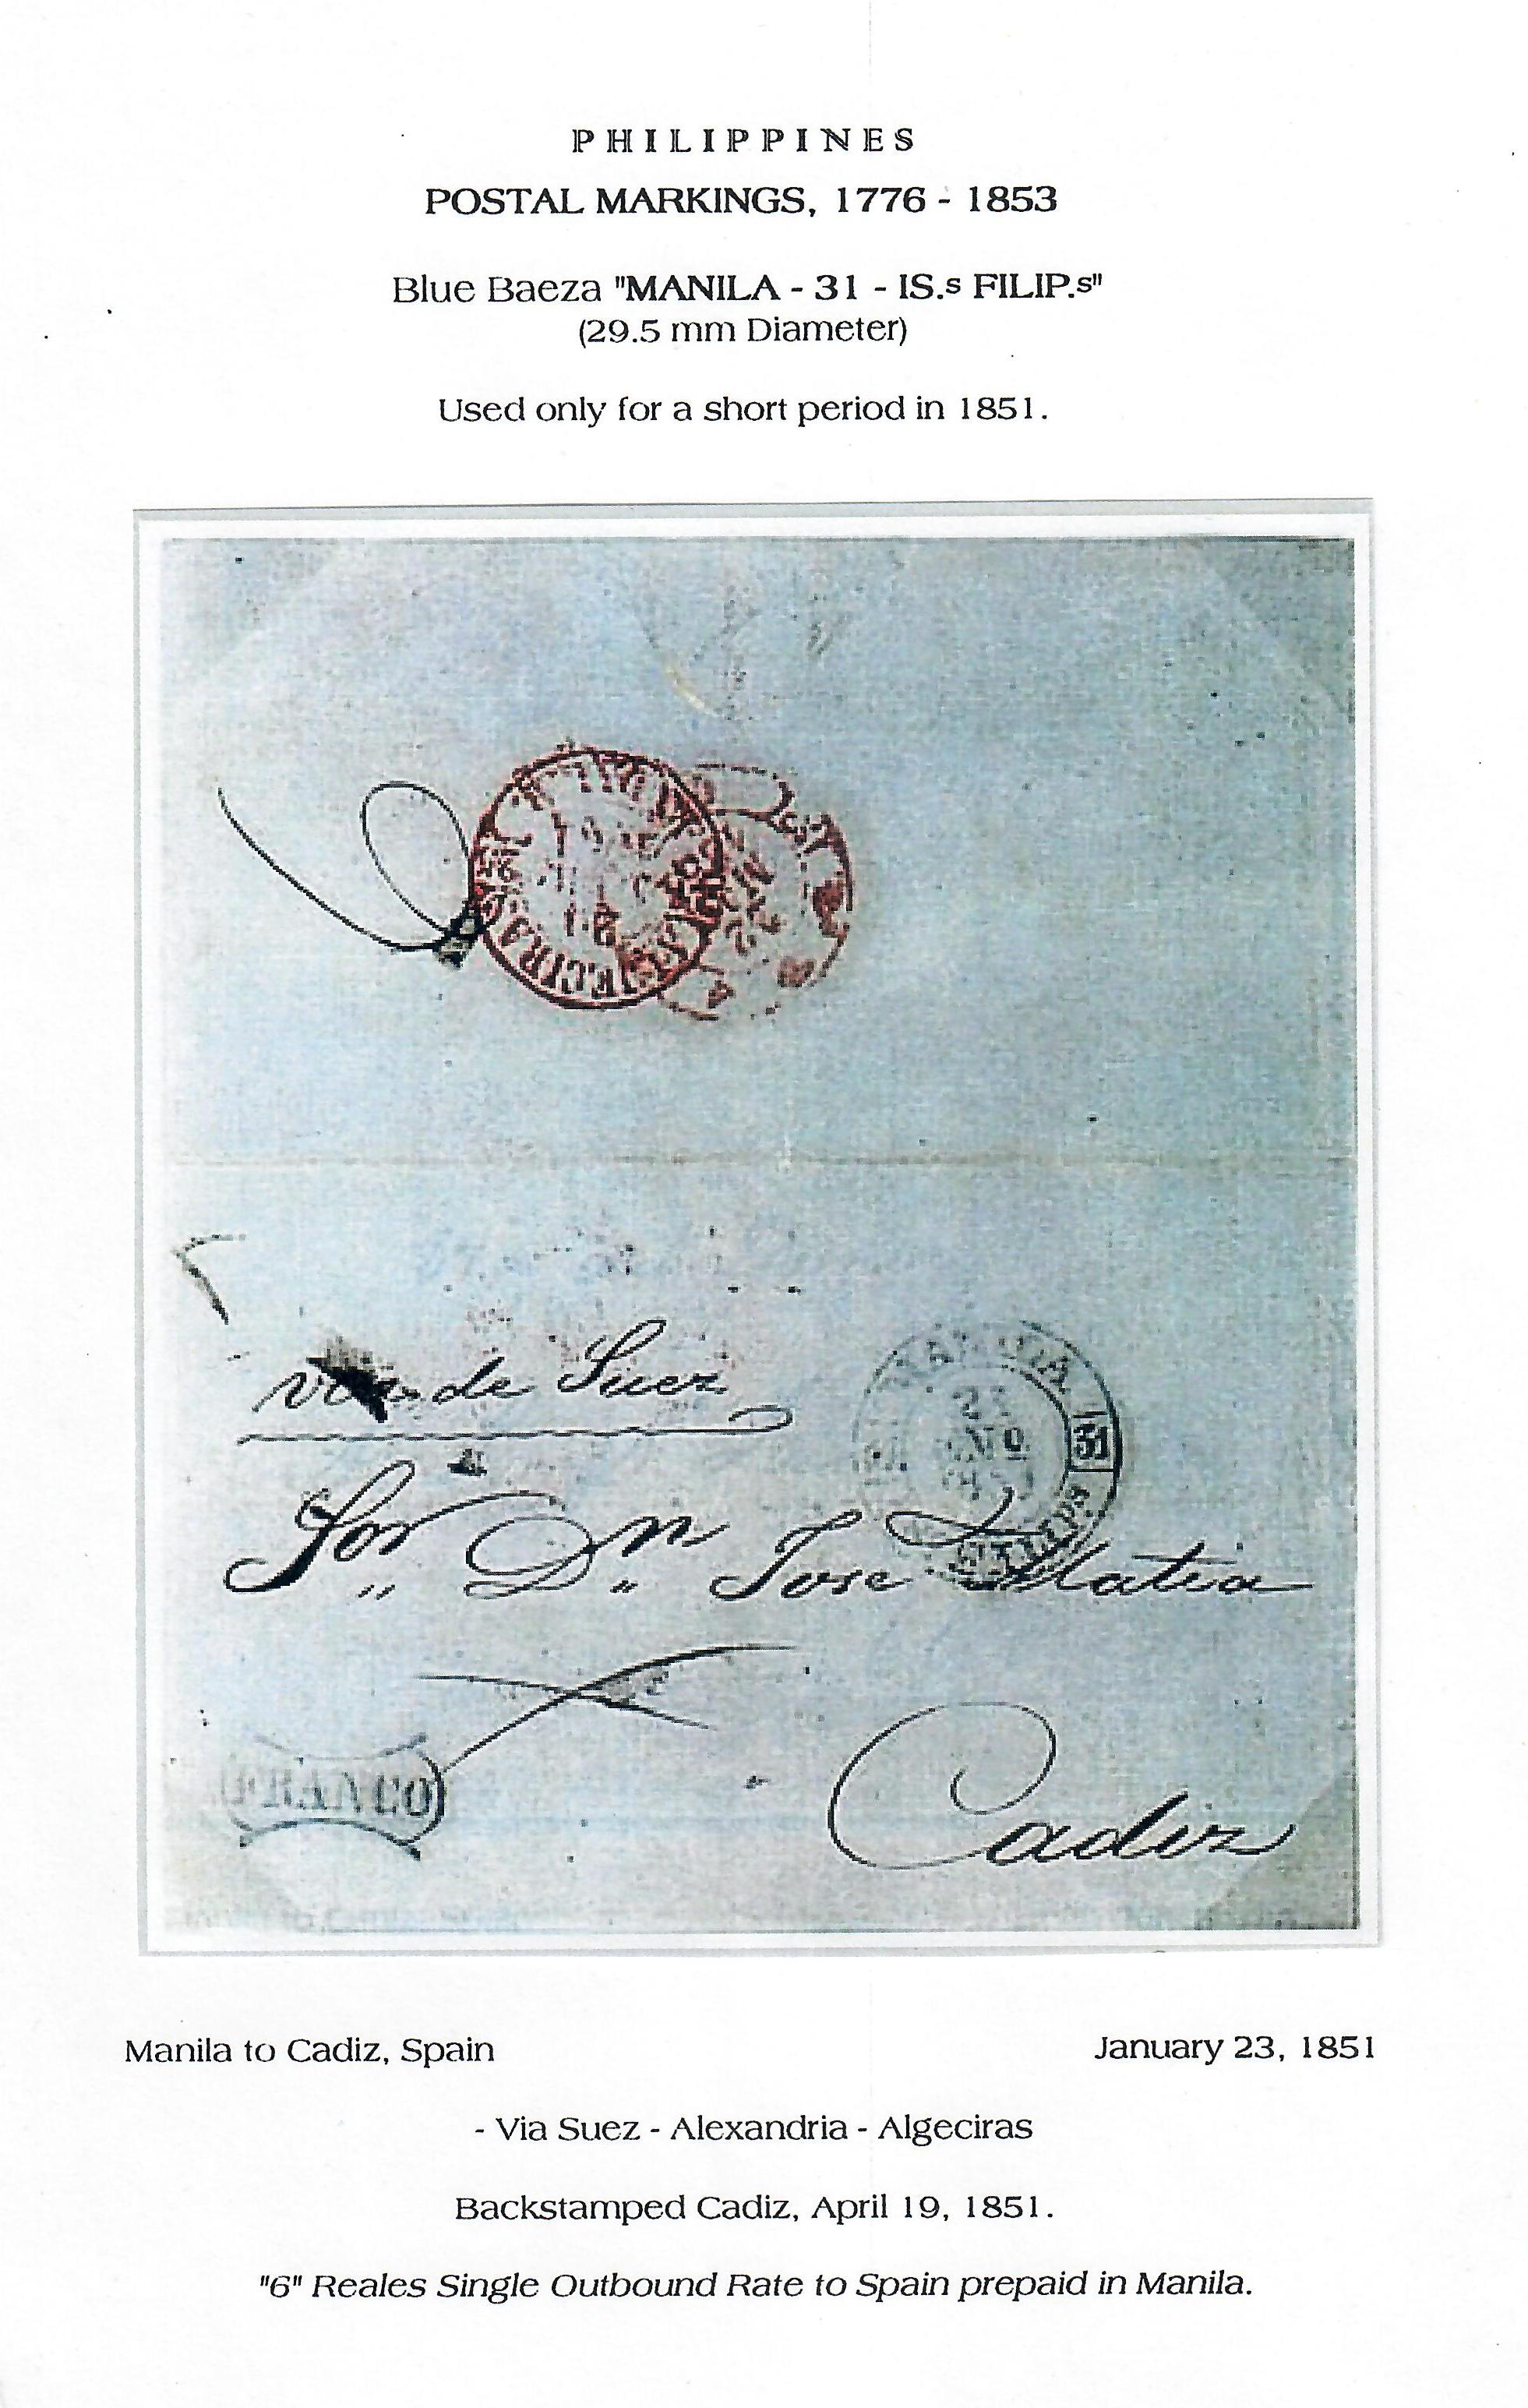 PHILIPPINES
POSTAL MARKINGS, 1776 - 1853
Blue Baeza "MANILA - 31 - IS.s FILIP.s"
(29.5 mm Diameter)
Used only for a short period in 1851.
ALGECIRAS
de Suez
MANILA
31
Sor Dn Jose Matia
FRANCO
Cadiz
Manila to Cadiz, Spain
January 23, 1851
- Via Suez - Alexandria - Algeciras
Backstamped Cadiz, April 19, 1851.
"6" Reales Single Outbound Rate to Spain prepaid in Manila.